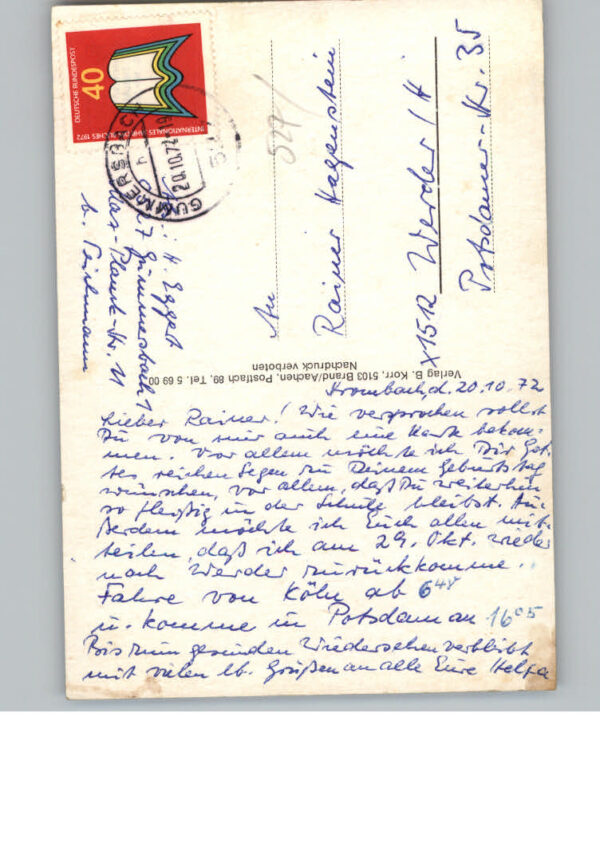 DEUTSCHE BUNDESPOST
40
INTERNATIONALES JAHR DES BUCHES 1972
GUMMERSBACH
20.10.72
527/
H. Eggert
527 Gummersbach 1
Max-Planck-Str. 11
b. Teichmann
An
Rainer Hagenstein
X1512 Werder/H
Potsdamer-Str. 35
Verlag B. Korr, 5103 Brand/Aachen, Postfach 69, Tel. 5 69 00
Nachdruck verboten
Strombach, d. 20.10.72
Lieber Rainer! Wie versprochen sollst
Du von mir auch eine Karte bekom-
men. Vor allem möchte ich Dir Got-
tes reichen Segen zu Deinem Geburtstag
wünschen, vor allem, daß Du weiterhin
so fleißig in der Schule bleibst. Au-
ßerdem möchte ich Euch allen mit-
teilen, daß ich am 29. Okt. wieder
nach Werder zurückkomme.
Fahre von Köln ab 6 48
u. komme in Potsdam an 16 05
Bis zum gesunden Wiedersehen verbleibt
mit vielen lb. Grüßen an alle Eure Helga